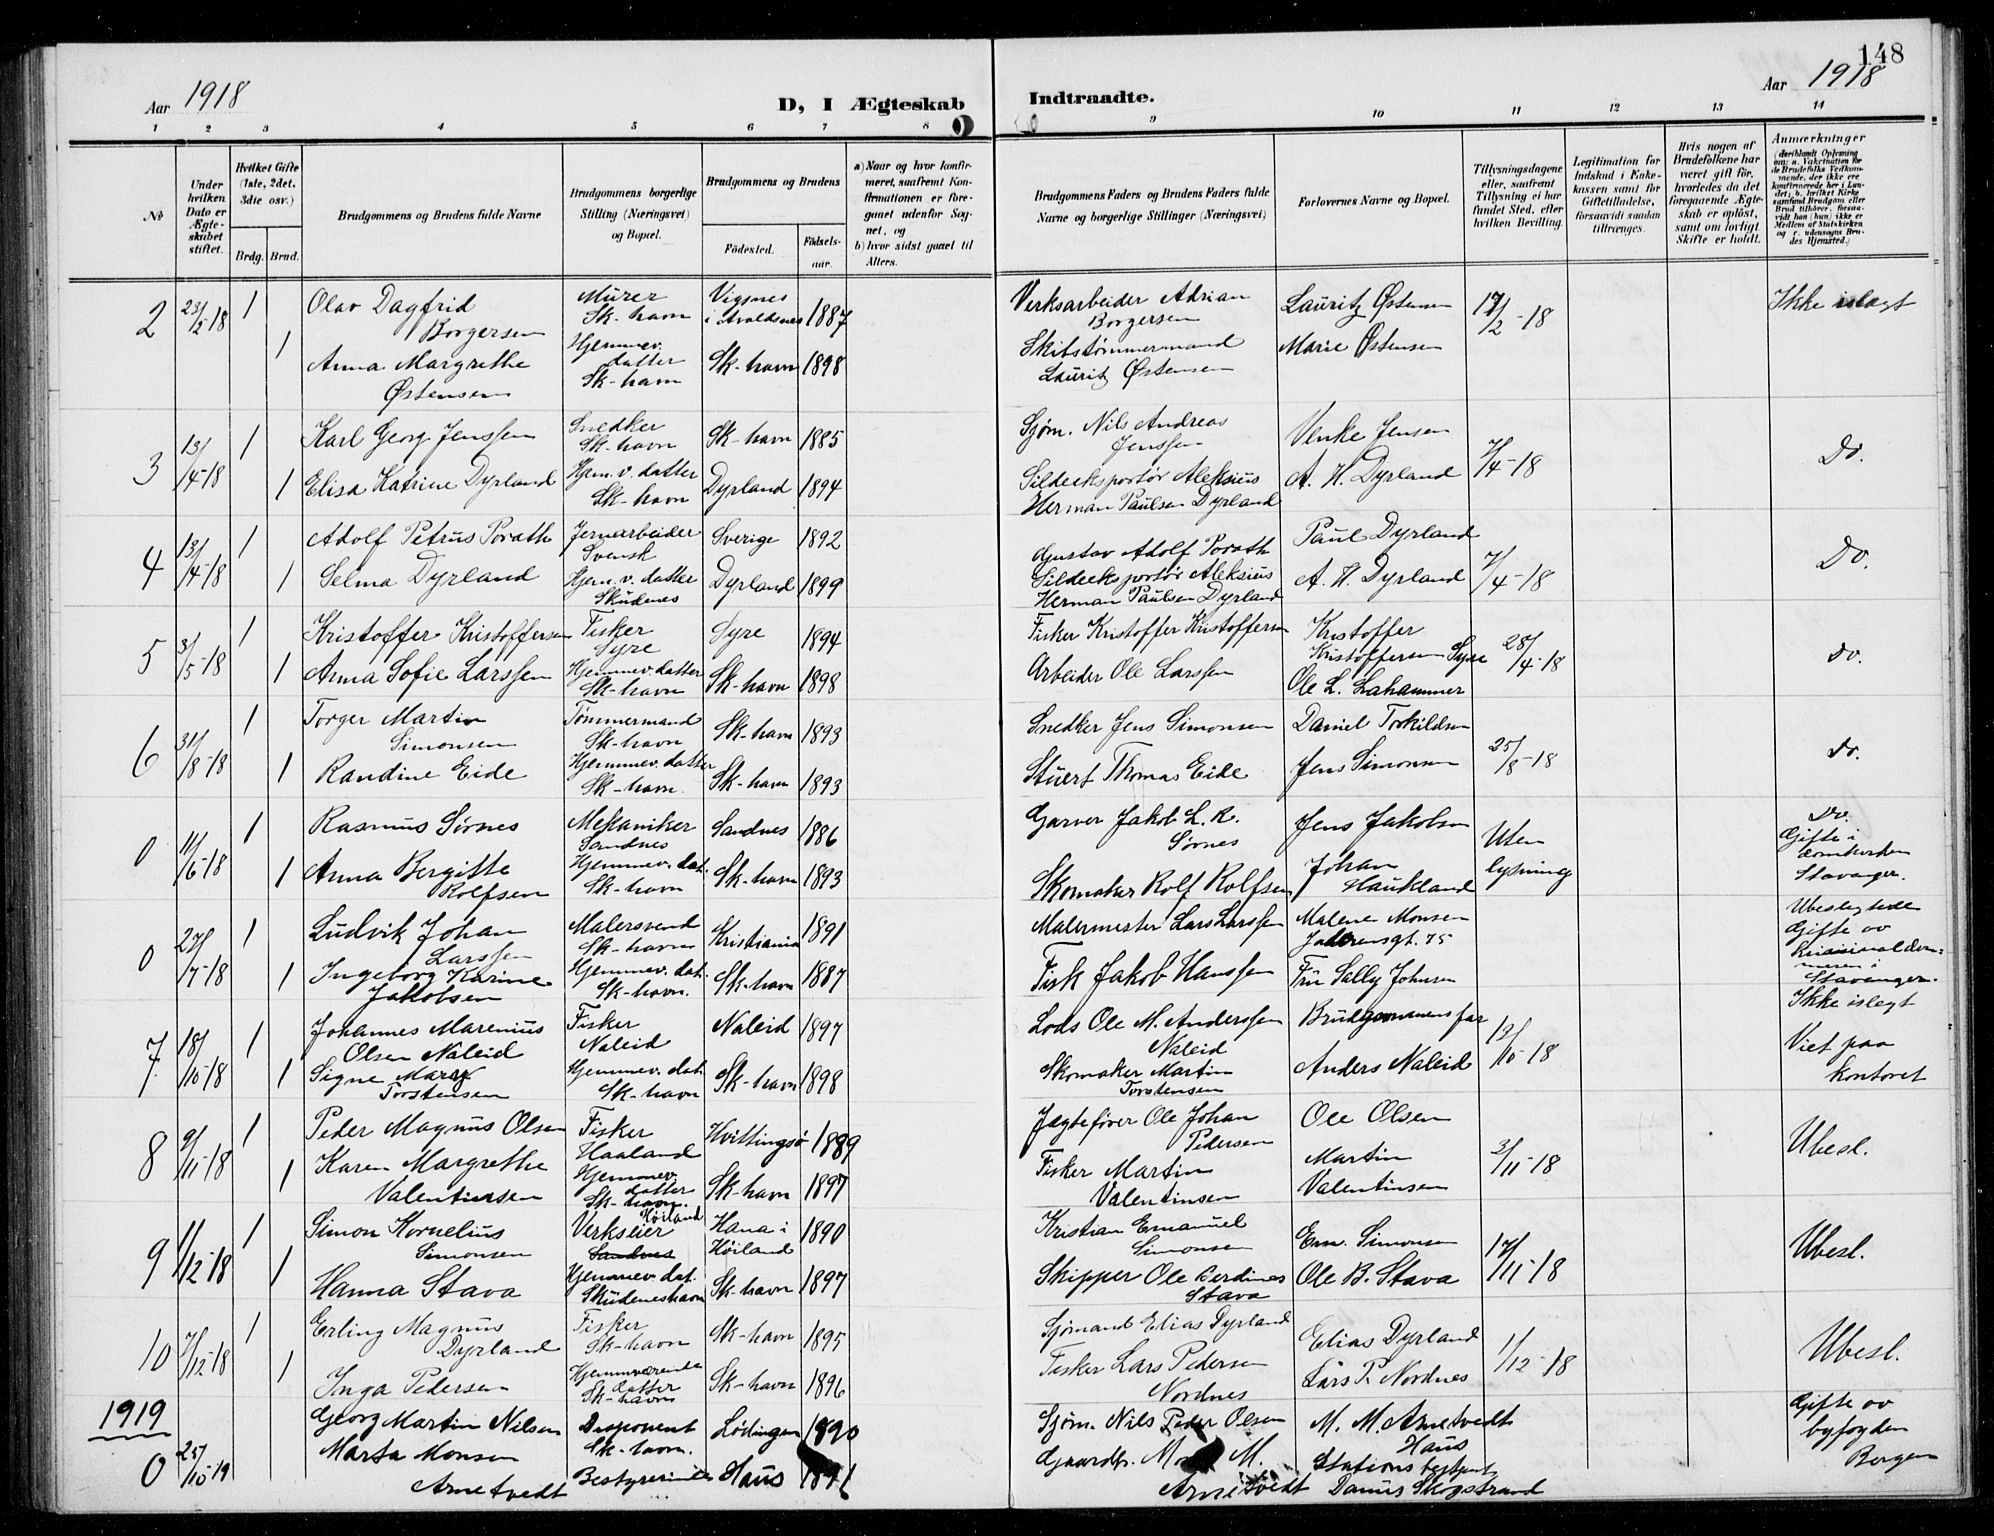 148
Aar 1918
D, I Ægteskab
Indtraadte.
Aar 1918
1 2 3 4 5 6 7 8
9 10 11 12 13 14
No
Under hvilken Dato er Ægteskabet stiftet.
Hvilket Gifte (1ste, 2det, 3die osv.)
Brdg. Brud.
Brudgommens og Brudens fulde Navne
Brudgommens borgerlige Stilling (Næringsvei) og Bopæl.
Brudgommens og Brudens
Födested.
Födsels-aar.
a) Naar og hvor konfirmeret, saafremt Konfirmationen er foregaaet udenfor Sognet, og
b) hvor sidst gaaet til Alters.
Brudgommens Faders og Brudens Faders fulde Navne og borgerlige Stillinger (Næringsvei)
Forlovernes Navne og Bopæl.
Tillysningsdagene eller, saafremt Tillysning ei har fundet Sted, efter hvilken Bevilling.
Legitimation for Indskud i Enkekassen samt for Giftetilladelse, forsaavidt saadan tiltrænges.
Hvis nogen af Brudefolkene har været gift för, hvorledes da det foregaaende Ægteskab er oplöst, samt om lovligt Skifte er holdt.
Anmærkninger
2 23/2-18 1 Olav Dagfrid Borgersen Murer Sk-havn Vigsnes i Avaldsnes 1887 Verksarbeider Adrian Borgersen Lauritz Østensen 17/2-18 Ikke islegt
1 Anna Margrethe Østensen Hjemmev. datter Sk-havn Sk-havn 1898 Skibstømmermand Lauritz Østensen Marie Østensen
3 13/4-18 1 Karl Georg Jenssen Snedker Sk-havn Sk-havn 1885 Sjøm. Nils Andreas Jenssen Venke Jensen 7/4-18 Do.
1 Elisa Katrine Dyrland Hjem.v. datter Sk-havn Dyrland 1894 Sildeeksportør Aleksius Herman Paulsen Dyrland A. H. Dyrland
4 13/4-18 1 Adolf Petrus Porath Jernarbeider Svensk Sverige 1892 Gustav Adolf Porath Paul Dyrland 7/4-18 Do.
1 Selma Dyrland Hjem.v. datter Skudenes Dyrland 1899 Sildeeksportør Aleksius Herman Paulsen Dyrland A. H. Dyrland
5 3/5-18 1 Kristoffer Kristoffersen Fisker Syre Syre 1894 Fisker Kristoffer Kristoffersen Kristoffer Kristoffersen Syre 28/4-18 Do.
1 Anna Sofie Larssen Hjemmev. datter Sk-havn Sk-havn 1898 Arbeider Ole Larssen Ole L. Lahammer
6 31/8-18 1 Torger Martin Simonsen Tømmermand Sk-havn Sk-havn 1893 Snedker Jens Simonsen Daniel Torkildsen 25/8-18 Do.
1 Randine Eide Hjemmev. datter Sk-havn Sk-havn 1893 Stuert Thomas Eide Jens Simonsen
0 11/6-18 1 Rasmus Sørnes Mekaniker Sandnes Sandnes 1886 Garver Jakob L. R. Sørnes Jens Jakobsen Uten lysning Do. Gifte i domkirken Stavanger.
1 Anna Bergitte Rolfsen Hjemmev. dat. Sk-havn Sk-havn 1893 Skomaker Rolf Rolfsen Johan Haukland
0 27/7-18 1 Ludvik Johan Larssen Malersvend Sk-havn Kristiania 1891 Malermester Lars Larssen Malene Monsen Jadarensgt. 75 Ubeslegtede Gifte av Stavanger.
1 Ingeborg Karine Jakobsen Hjemmev. dat. Sk-havn. Sk-havn 1887 Fisk Jakob Hanssen Fru Sally Johnsen
7. 18/10-18 1 Johannes Marenius Olsen Naleid Fisker Naleid Naleid 1897 Lods Ole M. Anderssen Naleid Brudgommens far 12/10-18 Ikke islegt Viet paa kontoret
1 Signe Mary Torstensen Hjemmev. dat. Sk-havn Sk-havn 1898 Skomaker Martin Torstensen Anders Naleid
8 9/11-18 1 Peder Magnus Olsen Fisker Haaland Hvittingsø 1889 Jægtefører Ole Johan Pedersen Ole Olsen 3/11-18 Ubesl.
1 Karen Margrethe Valentinsen Hjemmev. datter Sk-havn. Sk-havn 1897 Fisker Martin Valentinsen Martin Valentinsen
9 1/12-18 1 Simon Kornelius Simonsen Verkseier Høiland Sandnes Hana i Høiland 1890 Kristian Emanuel Simonsen Em. Simonsen 17/11-18 Ubesl.
1 Hanna Stava Hjemmev. dat. Skudeneshavn Sk-havn 1897 Skipper Ole Berdines Stava Ole B. Stava
10 7/12-18 1 Erling Magnus Dyrland Fisker Sk-havn Sk-havn 1895 Sjømand Elias Dyrland Elias Dyrland 1/12-18 Ubesl.
1 Inga Pedersen Hjemmværende datter Sk-havn Sk-havn 1896 Fisker Lars Pedersen Nordnes Lars P. Nordnes
1919
0 25/10-19 Georg Martin Nilsen Disponent Sk-havn. Lødingen 1890 Sjøm. Nils Peder Olsen M. M. Arnetvedt Haus Gifte av byfogden Bergen
Marta Monsen Arnetvedt Bestyrerinde Haus Gaardbr. M. Arnetvedt Stationsbestyrer Skogstrand